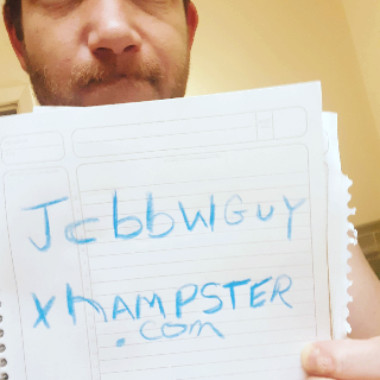 JcbbwlGuy
xhAMPSTER
.com